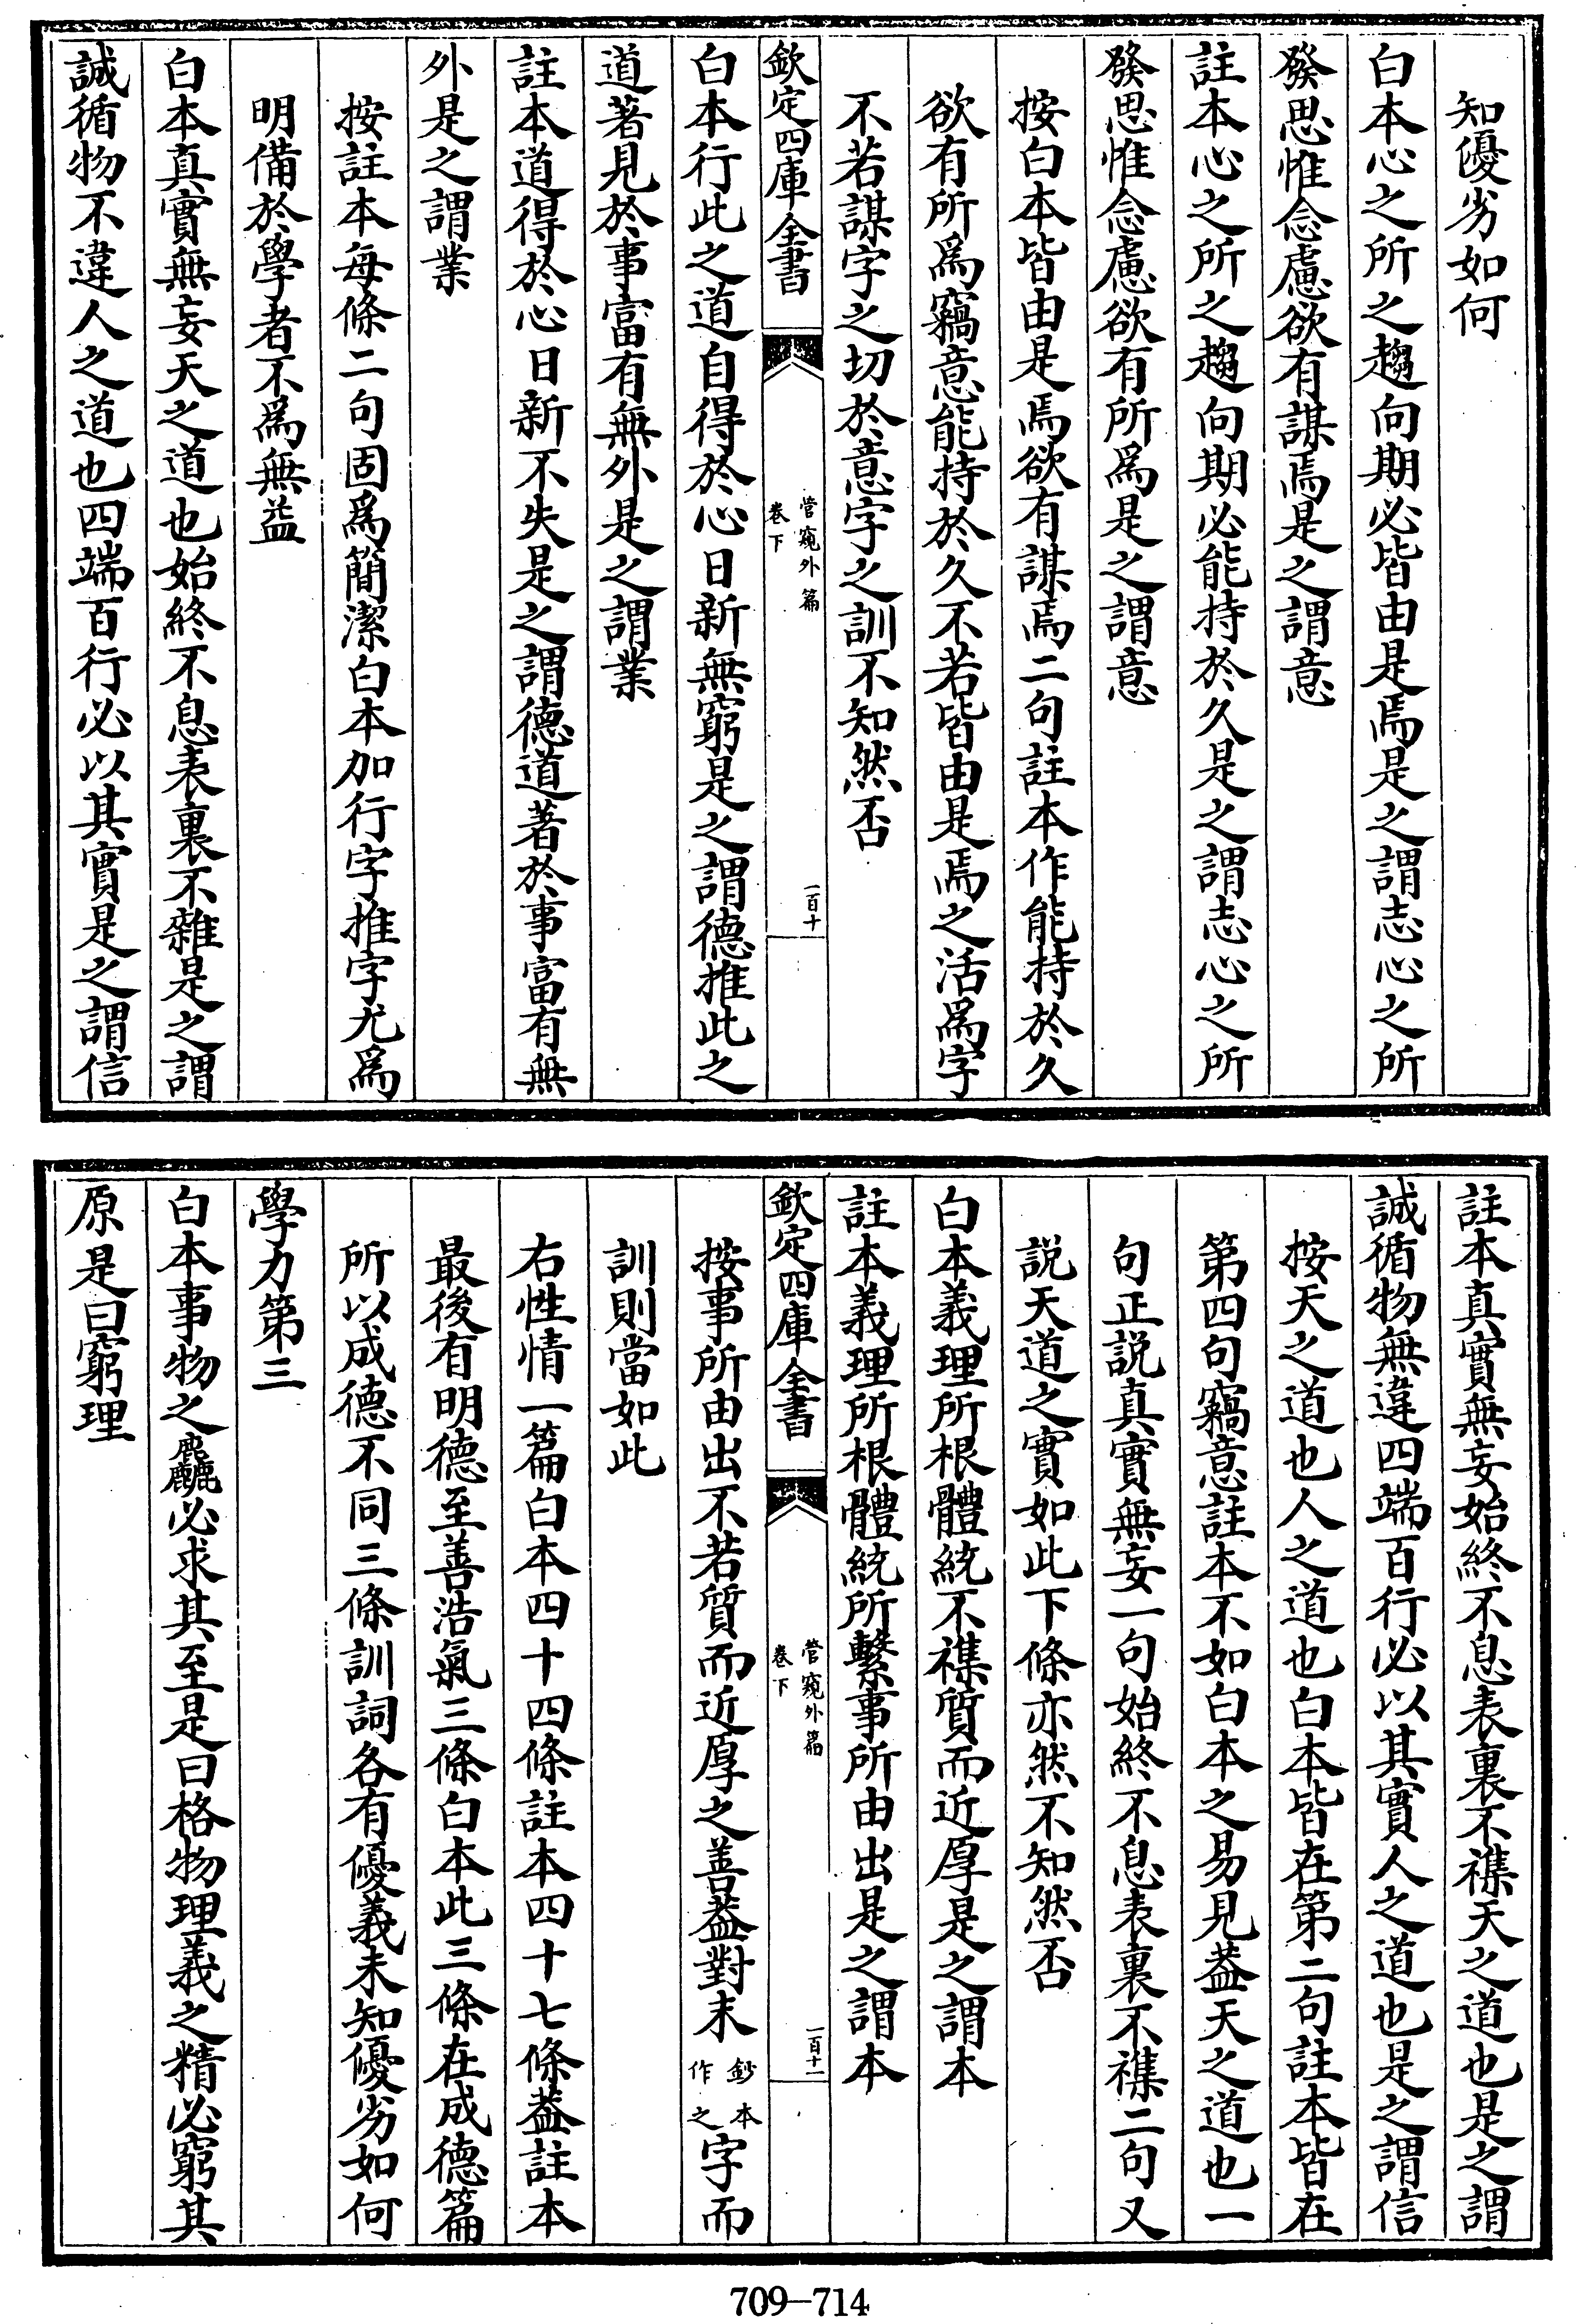 知優劣如何
白本心之所之趨向期必皆由是焉是之謂志心之所
發思惟念慮欲有謀焉是之謂意
註本心之所之趨向期必能持於久是之謂志心之所
發思惟念慮欲有所爲是之謂意
按白本皆由是焉欲有謀焉二句註本作能持於久
欲有所爲竊意能持於久不若皆由是焉之活爲字
不若謀字之切於意字之訓不知然否
欽定四庫全書
管窺外篇
卷下
一百十
白本行此之道自得於心日新無窮是之謂德推此之
道著見於事富有無外是之謂業
註本道得於心日新不失是之謂德道著於事富有無
外是之謂業
按註本每條二句固爲簡潔白本加行字推字尤爲
明備於學者不爲無益
白本真實無妄天之道也始終不息表裏不雜是之謂
誠循物不違人之道也四端百行必以其實是之謂信
註本真實無妄始終不息表裏不襍天之道也是之謂
誠循物無違四端百行必以其實人之道也是之謂信
按天之道也人之道也白本皆在第二句註本皆在
第四句竊意註本不如白本之易見葢天之道也一
句正説真實無妄一句始終不息表裏不襍二句又
説天道之實如此下條亦然不知然否
白本義理所根體統不襍質而近厚是之謂本
註本義理所根體統所繫事所由出是之謂本
欽定四庫全書
管窺外篇
卷下
一百十一
按事所由出不若質而近厚之善葢對末鈔本作之字而
訓則當如此
右性情一篇白本四十四條註本四十七條葢註本
最後有明德至善浩氣三條白本此三條在成德篇
所以成德不同三條訓詞各有優義未知優劣如何
學力第三
白本事物之麤必求其至是曰格物理義之精必窮其
原是曰窮理
709—714